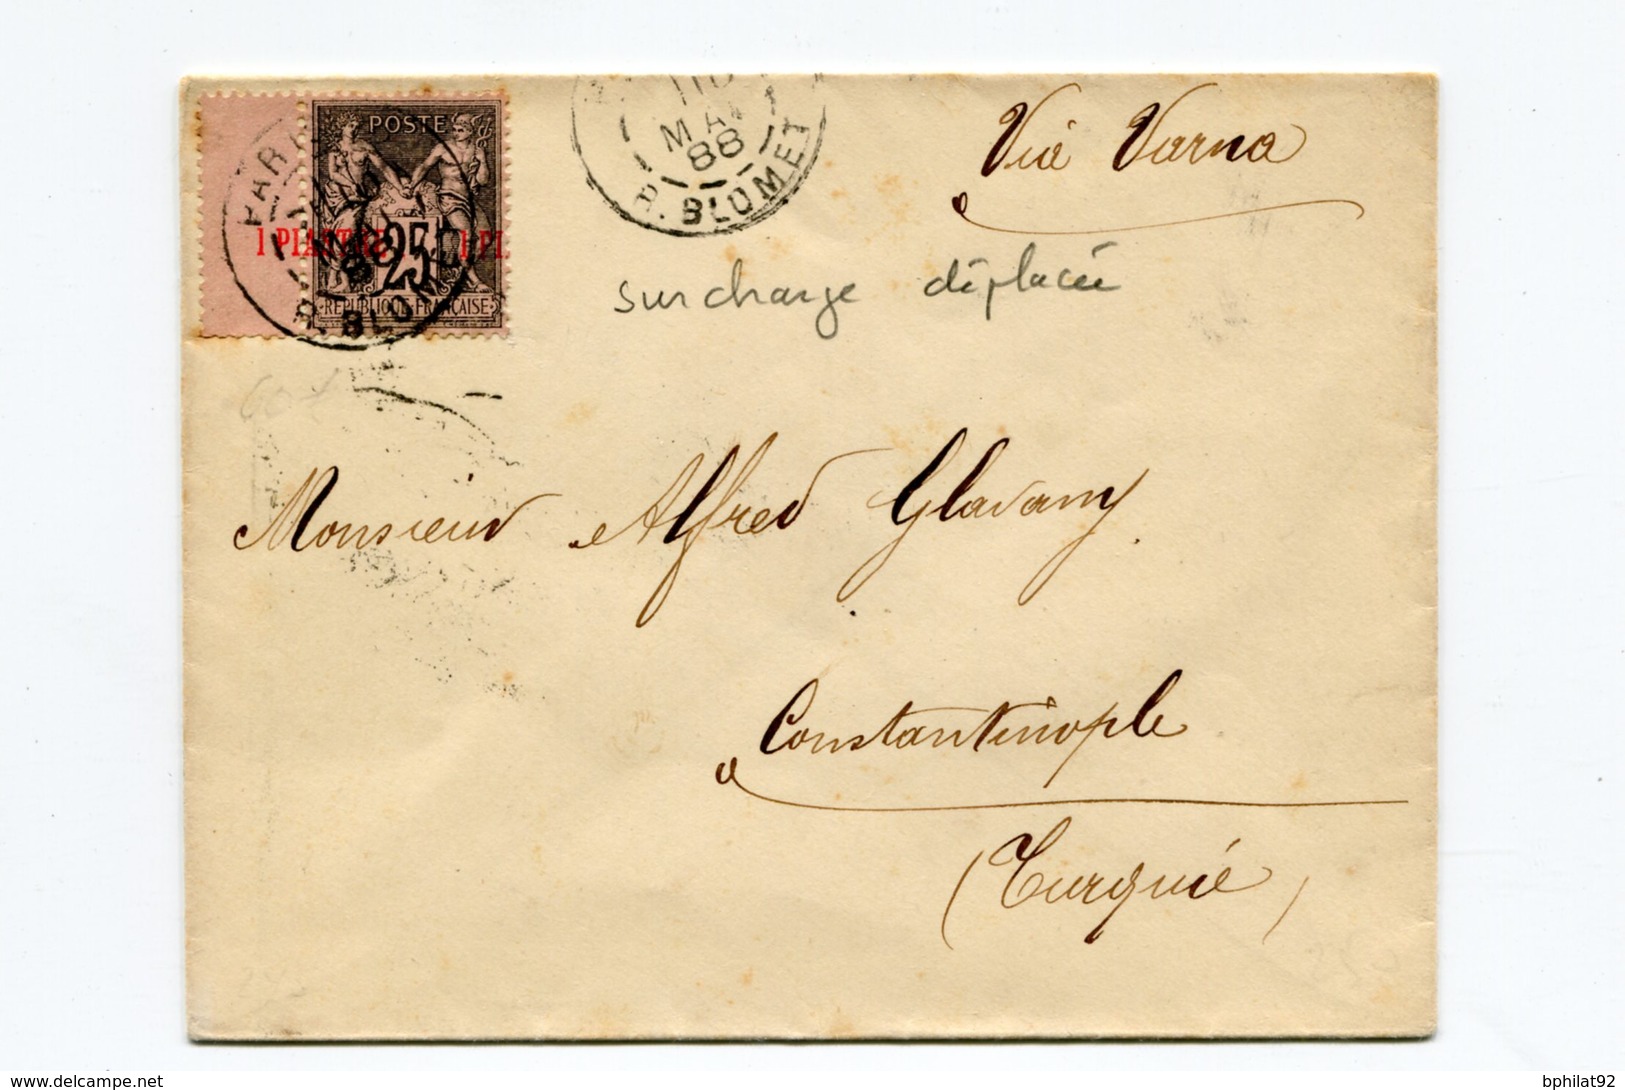 POSTE
1 PIASTRE 1 PI
25
REPUBLIQUE FRANÇAISE
PARIS
R. BLOMET
MAI
88
R. BLOMET
Via Varna
surcharge déplacée
Monsieur Alfred Glavany.
Constantinople
(Turquié)
www.delcampe.net
bphilat92